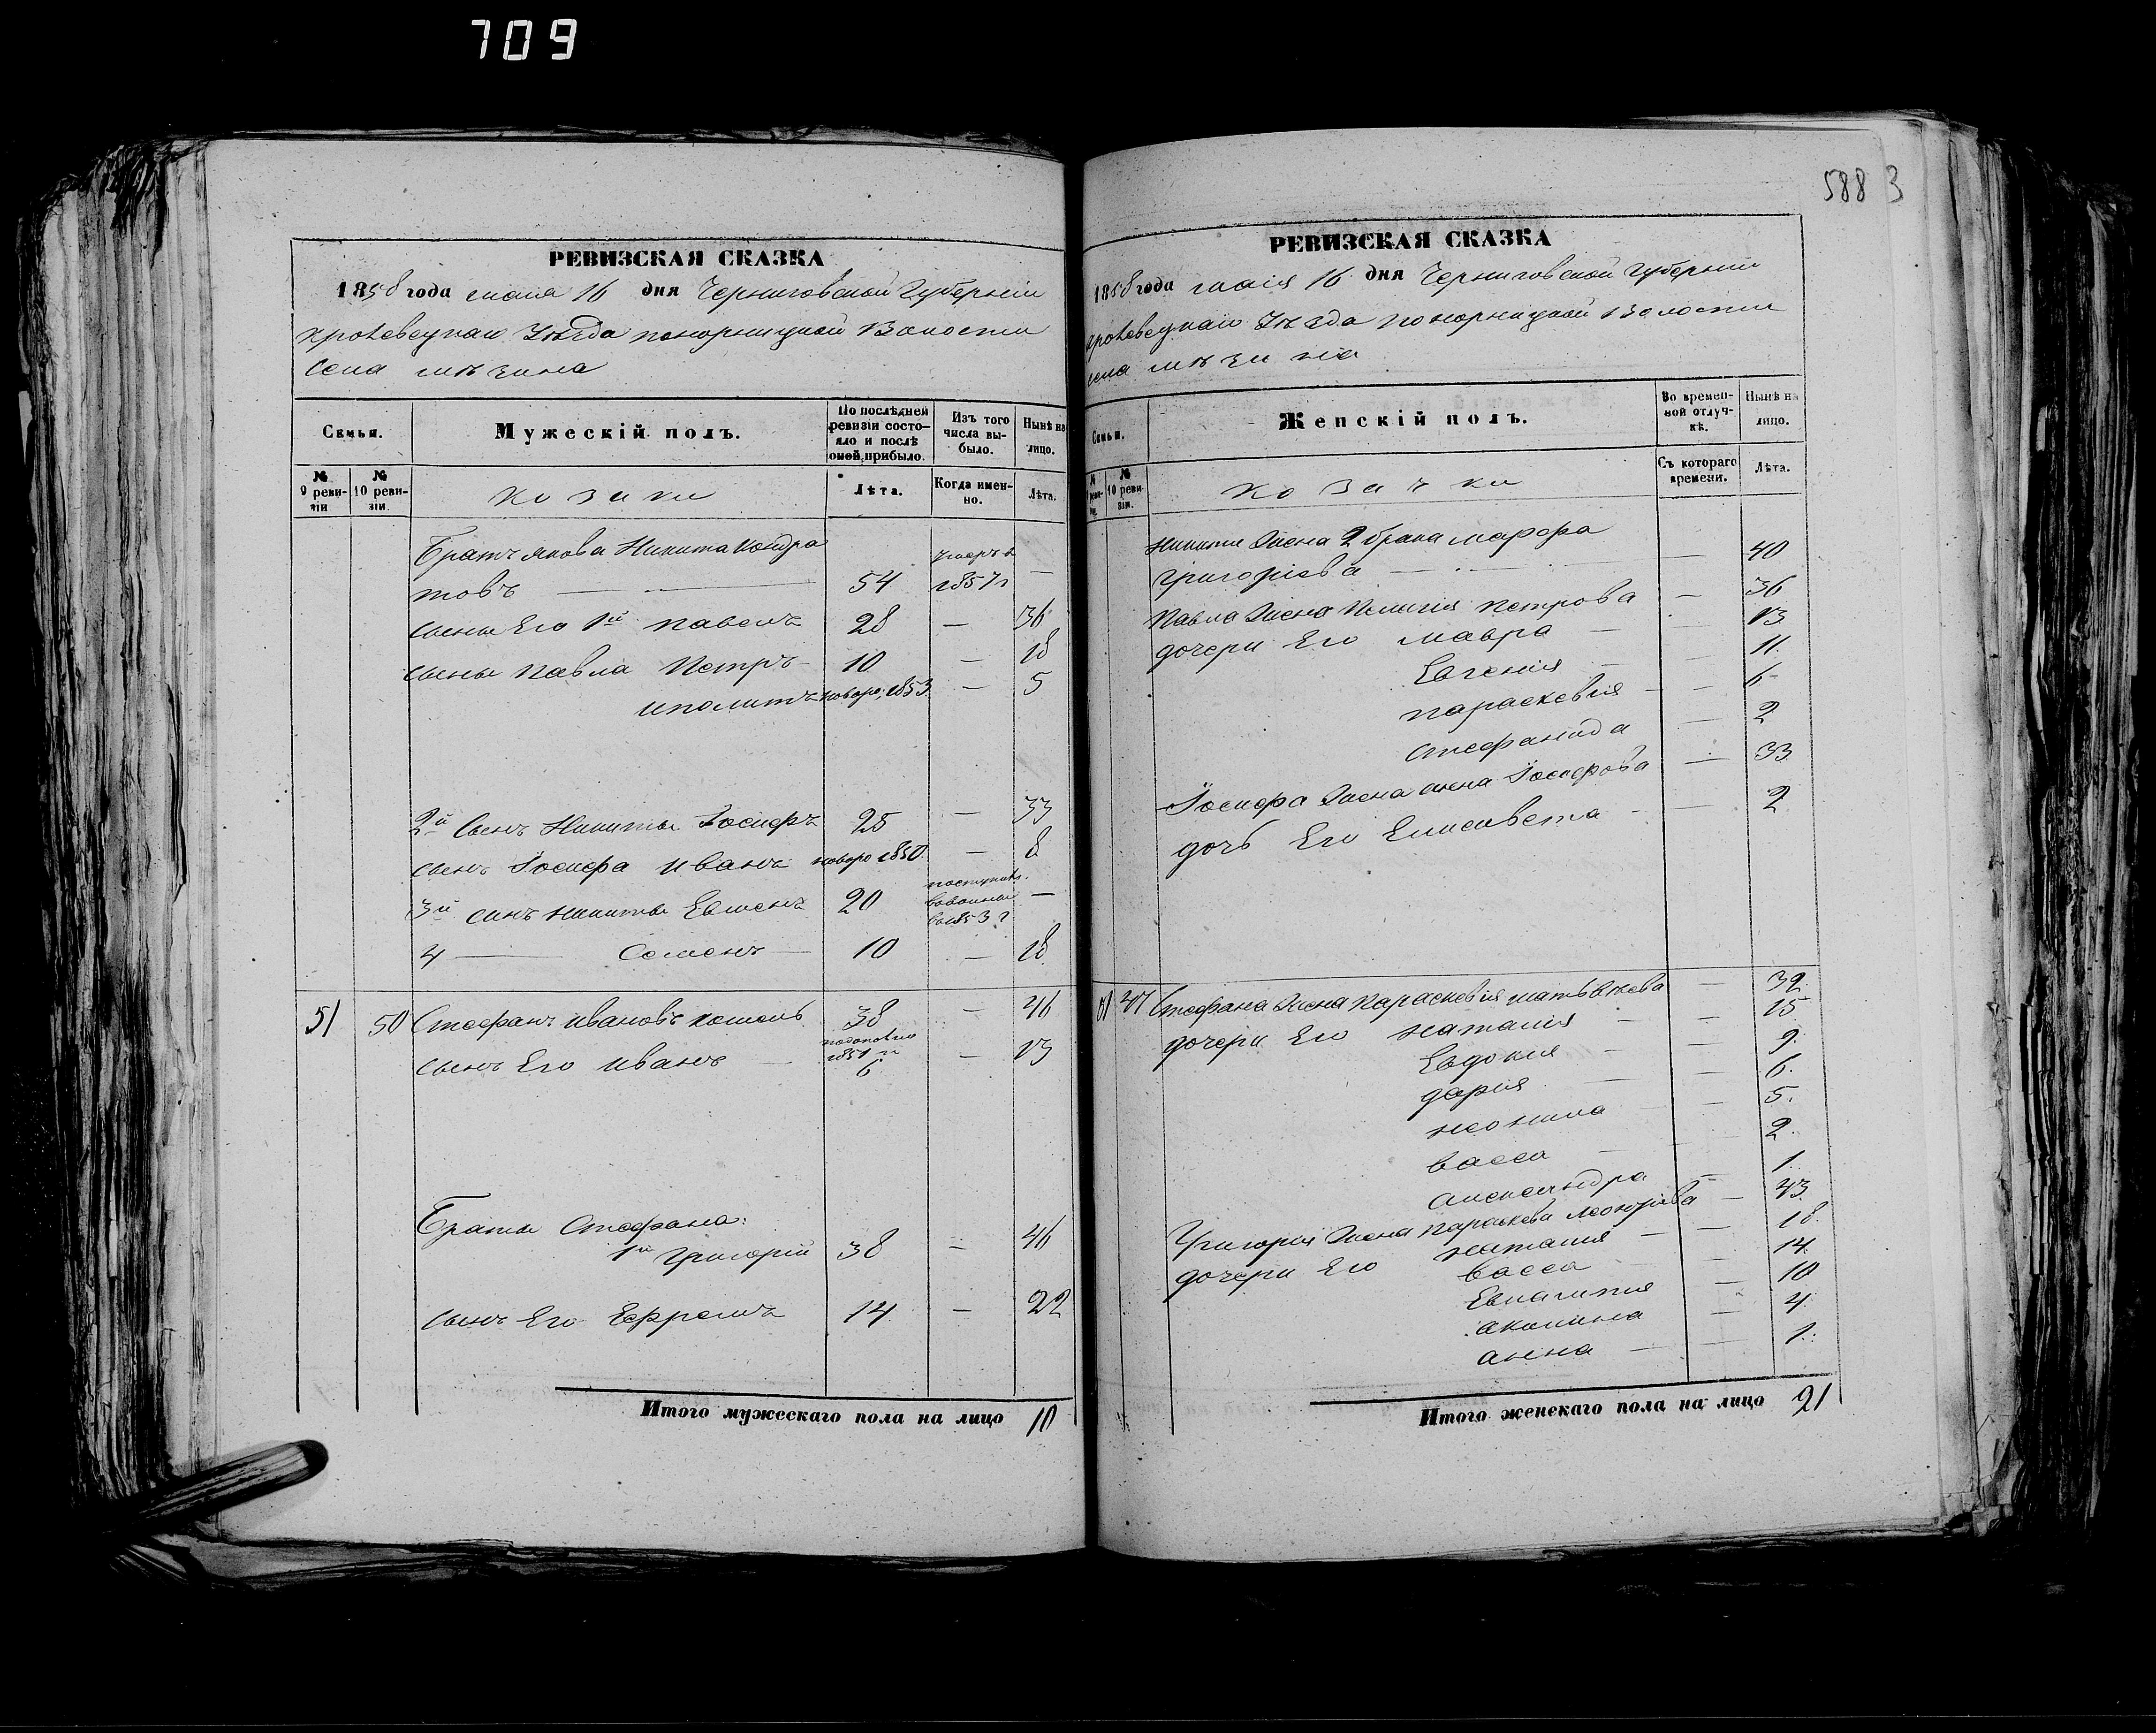 709
588 3
РЕВИЗСКАЯ СКАЗКА
1858 года маія 16 дня Черниговской Губерніи
Кролевецкаго Уѣзда понорницкой Волости
села мѣзина
Семьи.
Мужескій полъ.
По послѣдней ревизіи состояло и послѣ оной прибыло.
Изъ того числа выбыло.
Нынѣ на лицо.
№ 9 ревизіи
№ 10 ревизіи.
козаки
Лѣта.
Когда именно.
Лѣта.
Братъ якова Никита Кондра
товъ — 54 умеръ в 1857 г —
сыны Его 1й павелъ 28 — 36
сыны павла Петръ 10 — 18
иполитъ новоро. 1853. — 5
2й Сынъ Никиты Іосифъ 25 — 33
сынъ Іосифа иванъ новоро 1850. — 8
3й синъ никиты Евменъ 20 1853 г —
4 — Семенъ — 10 — 18
51 50 Стефанъ ивановъ кошель 38 — 46
сынъ Его иванъ 1851 г 6 — 13
Браты Стефана:
1й григорій 38 — 46
сынъ Его Ефремъ 14 — 22
Итого мужескаго пола на лицо 10
РЕВИЗСКАЯ СКАЗКА
1858 года маія 16 дня Черниговской Губерніи
кролевецкаго Уѣзда понорницкой Волости
села мѣзина
Семьи.
Женскій полъ.
Во временной отлучкѣ.
Нынѣ на лицо.
№ 9 ревизіи
№ 10 ревизіи.
козачки
Съ котораго времени.
Лѣта.
Никиты жена 2 брака марфа
григоріева — 40
Павла жена Пелагія петрова — 36
дочери Его мавра — 13
Евгенія — 11.
параскевія — 6
стефанида — 2
Іосифа жена анна Іосифова — 33
дочь Его Елисавета — 2
51 47 Стефана жена параскевія матвѣева — 32
дочери Его наталія — 15
Евдокія — 9.
дарія — 6.
неонила — 5.
васса — 2.
александра — 1.
Григорія жена параскева леонтіева — 43
дочери Его наталія — 18.
васса — 14.
Евлампія — 10
акилина — 4.
анна — 1.
Итого женскаго пола на лицо 21